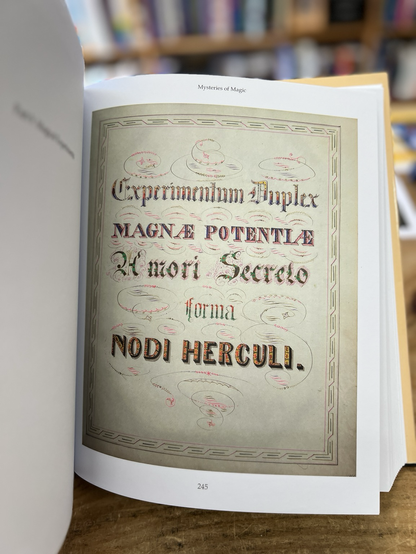 Mysteries of Magic
Experimentum Duplex
MAGNÆ POTENTIÆ
Amori Secreto
forma
NODI HERCULI.
245